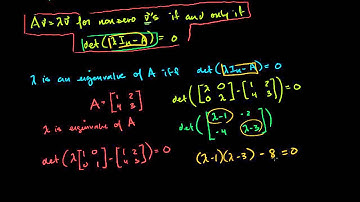 Av̄ = λv̄ for nonzero v̄'s if and only if
det(λIₙ - A) = 0
λ is an eigenvalue of A iff det(λIₙ - A) = 0
A = [1 2; 4 3]
det([λ 0; 0 λ] - [1 2; 4 3])
λ is eigenvalue of A
det([λ-1 -2; -4 λ-3])
det(λ[1 0; 0 1] - [1 2; 4 3]) = 0
(λ-1)(λ-3) - 8 = 0